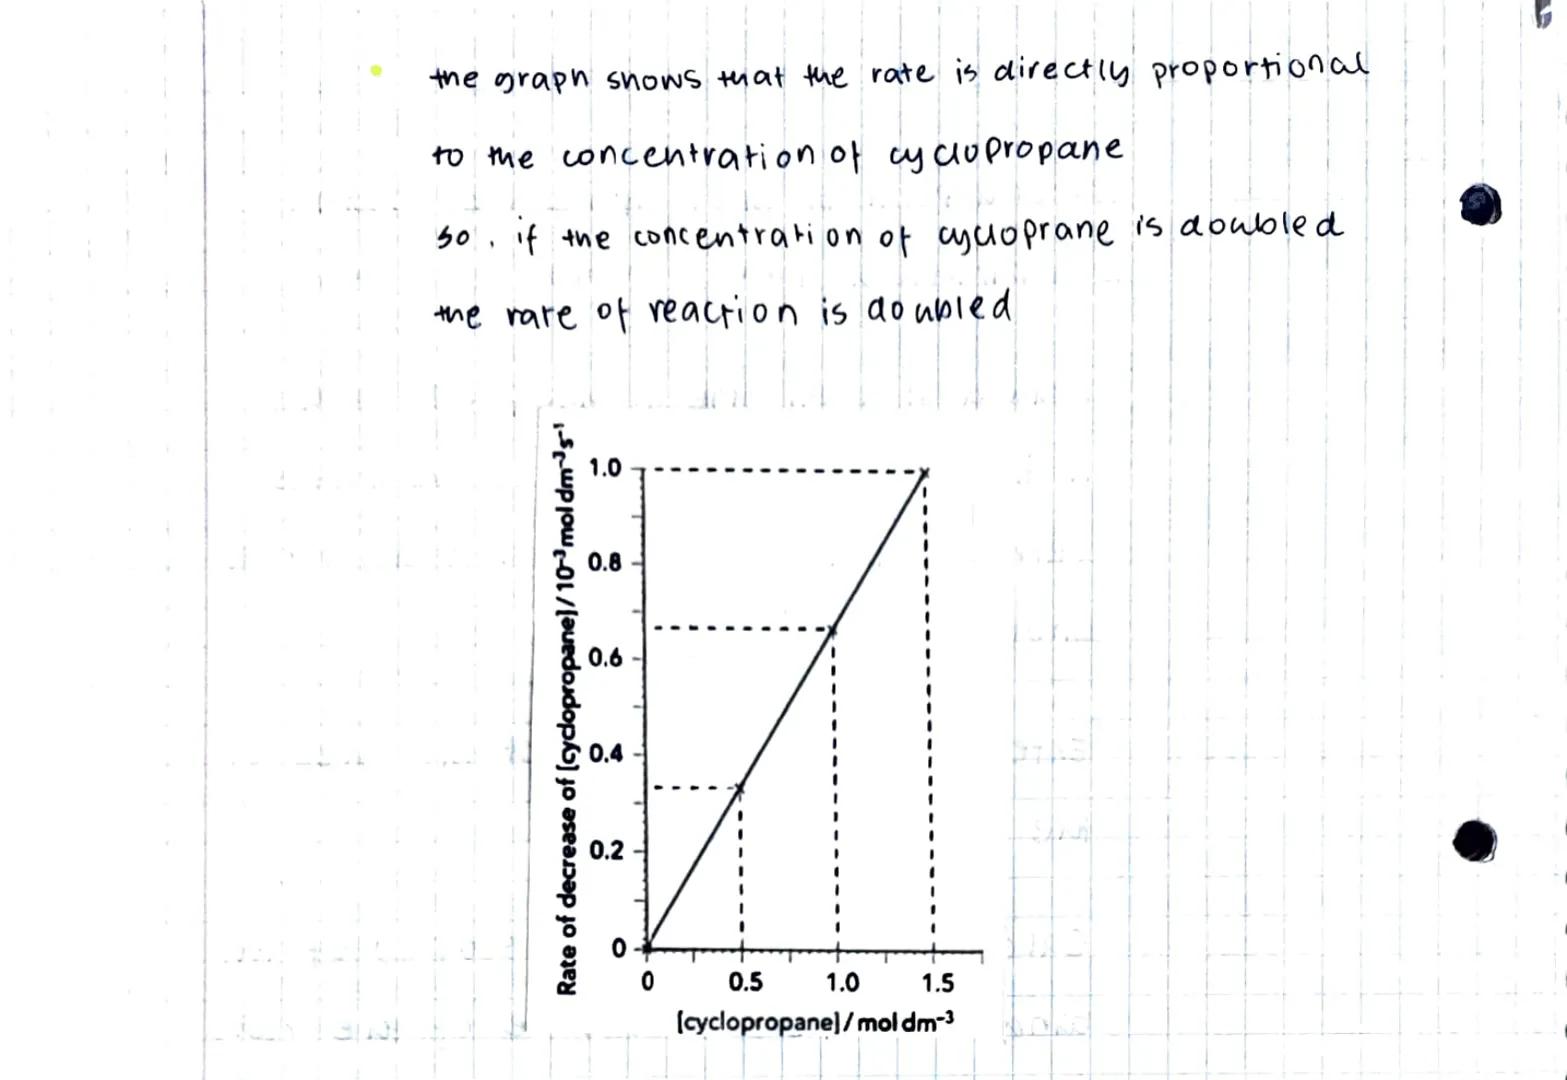 the graph shows that the rate is directly proportional
to the concentration of cyclopropane
so, if the concentration of cycloprane is doubled
the rate of reaction is doubled
Rate of decrease of [cyclopropane]/10⁻³ mol dm⁻³ s⁻¹
1.0
0.8
0.6
0.4
0.2
0
0 0.5 1.0 1.5
[cyclopropane]/mol dm⁻³